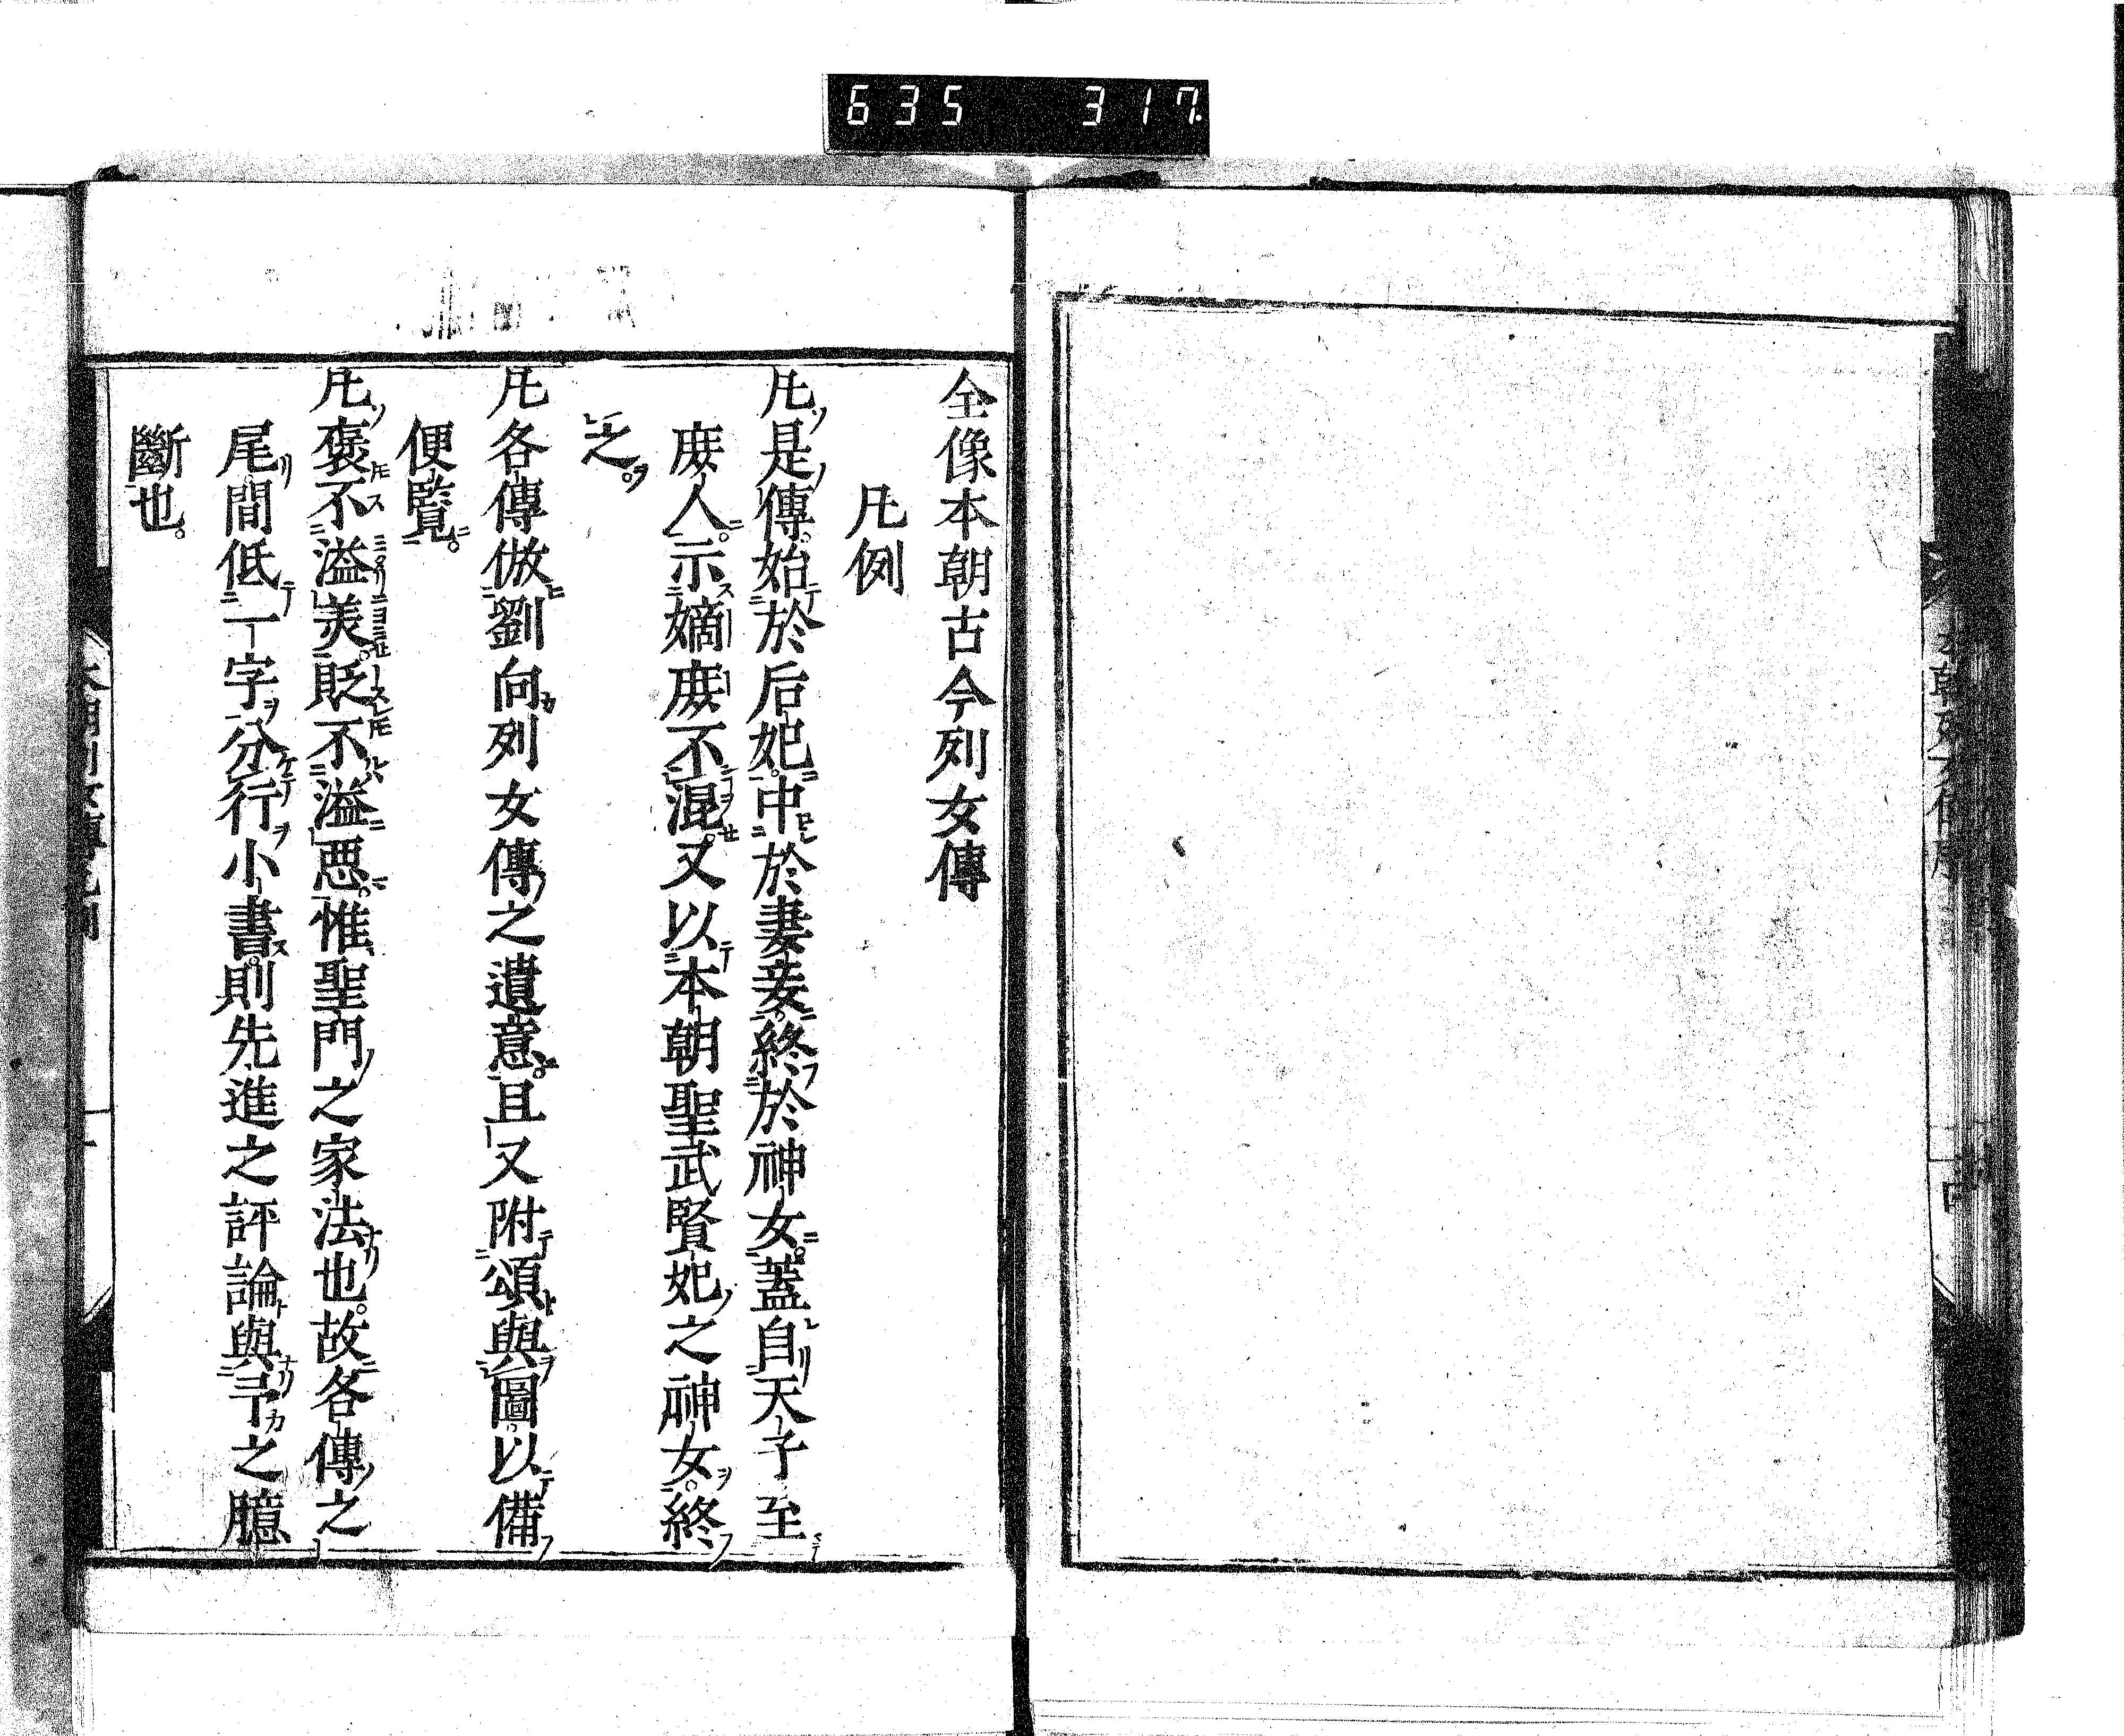 635 317
全像本朝古今列女傳
凡例
凡是傳始於后妃中於妻妾終於神女蓋自天子至
庻人示嫡庻不混又以本朝聖武賢妃之神女終
之
凡各傳倣劉向列女傳之遺意且又附頌與圖以備
便覧
凡褒不溢美貶不溢惡惟聖門之家法也故各傳之
尾間低一字分行小書則先進之評論與予之臆
斷也